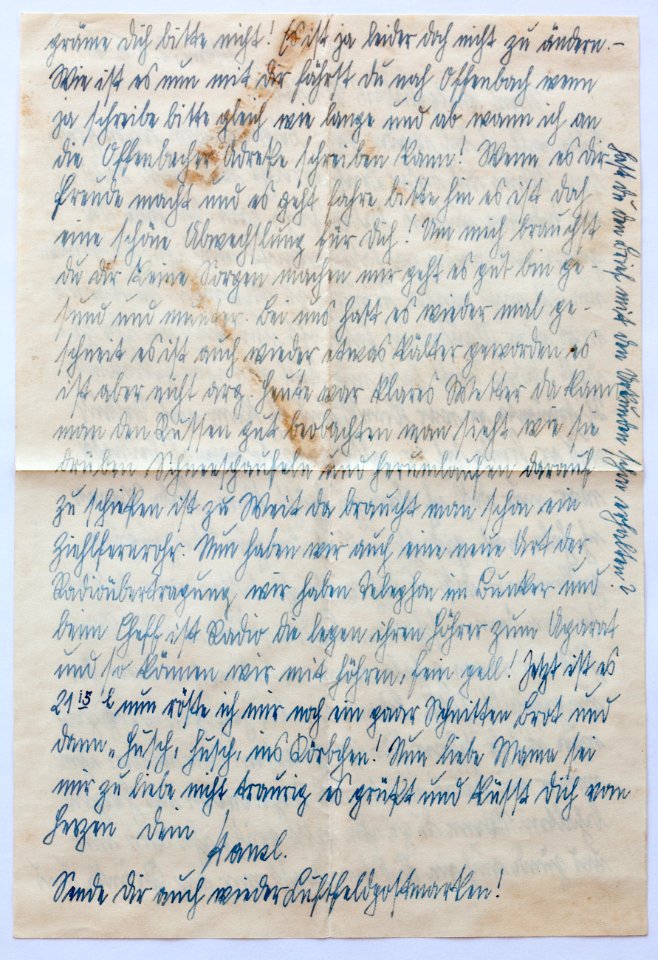 gräme Dich bitte nicht! Es ist ja leider doch nicht zu ändern.-
Wie ist es nun mit dir fährst du nach Offenbach wenn
ja schreibe bitte gleich wie lange und ab wann ich an
die Offenbacher Adreße schreiben kann! Wenn es dir
Freude macht und es geht fahre bitte hin es ist doch
eine schöne Abwechslung für Dich! Um mich brauchst
du dir keine Sorgen machen mir geht es gut bin ge-
sund und munter. Bei uns hatt es wieder mal ge-
schneit es ist auch wieder etwas kälter geworden es
ist aber nicht arg. Heute war klares Wetter da kann
man den Russen gut beobachten man sieht wie sie
drüben Schneeschaufeln und herumlaufen darauf
zu schießen ist zu Weit da braucht man schon ein
Ziehlfernrohr. Nun haben wir auch eine neue Art der
Radioübertragung, wir haben Telephon im Bunker und
beim Cheff ist Radio die legen ihren Höhrer zum Aparat
und so können wir mit höhren, fein gell! Jetzt ist es
21 15 h nun röste ich mir noch ein paar Schnitten Brot und
dann „Husch, husch, ins Körbchen! Nun liebe Mama sei
mir zu liebe nicht traurig es grüßt und küsst Dich vom
herzen dein
Hansl.
Sende Dir auch wieder Luftfeldpostmarken!
Hast du den Brief mit den Urkunden schon erhalten?